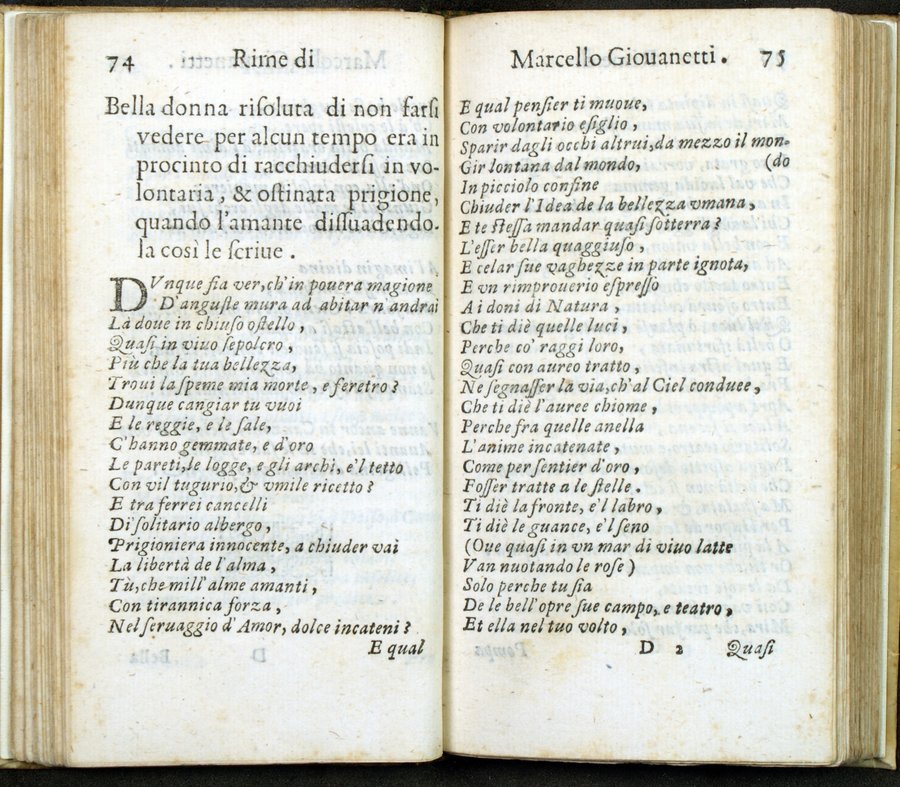 74 Rime di
Bella donna risoluta di non farsi
vedere per alcun tempo era in
procinto di racchiudersi in vo-
lontaria, & ostinata prigione,
quando l'amante dissuadendo-
la così le scriue.
DVnque fia ver, ch'in pouera magione
D'anguste mura ad abitar n'andrai
Là doue in chiuso ostello,
Quasi in viuo sepolcro,
Più che la tua bellezza,
Troui la speme mia morte, e feretro?
Dunque cangiar tu vuoi
E le reggie, e le sale,
C'hanno gemmate, e d'oro
Le pareti, le logge, e gli archi, e'l tetto
Con vil tugurio, & vmile ricetto?
E tra ferrei cancelli
Di solitario albergo,
Prigioniera innocente, a chiuder vai
La libertà de l'alma,
Tù, che mill'alme amanti,
Con tirannica forza,
Nel seruaggio d'Amor, dolce incateni?
E qual
Marcello Giouanetti. 75
E qual pensier ti muoue,
Con volontario esiglio,
Sparir dagli occhi altrui, da mezzo il mon-
Gir lontana dal mondo, (do
In picciolo confine
Chiuder l'Idea de la bellezza vmana,
E te stessa mandar quasi sotterra?
L'esser bella quaggiuso,
E celar sue vaghezze in parte ignota,
E vn rimprouerio espresso
A i doni di Natura,
Che ti diè quelle luci,
Perche co' raggi loro,
Quasi con aureo tratto,
Ne segnasser la via, ch'al Ciel conduce,
Che ti diè l'auree chiome,
Perche fra quelle anella
L'anime incatenate,
Come per sentier d'oro,
Fosser tratte a le stelle.
Ti diè la fronte, e'l labro,
Ti diè le guance, e'l seno
(Oue quasi in vn mar di viuo latte
Van nuotando le rose)
Solo perche tu sia
De le bell'opre sue campo, e teatro,
Et ella nel tuo volto,
D 2 Quasi